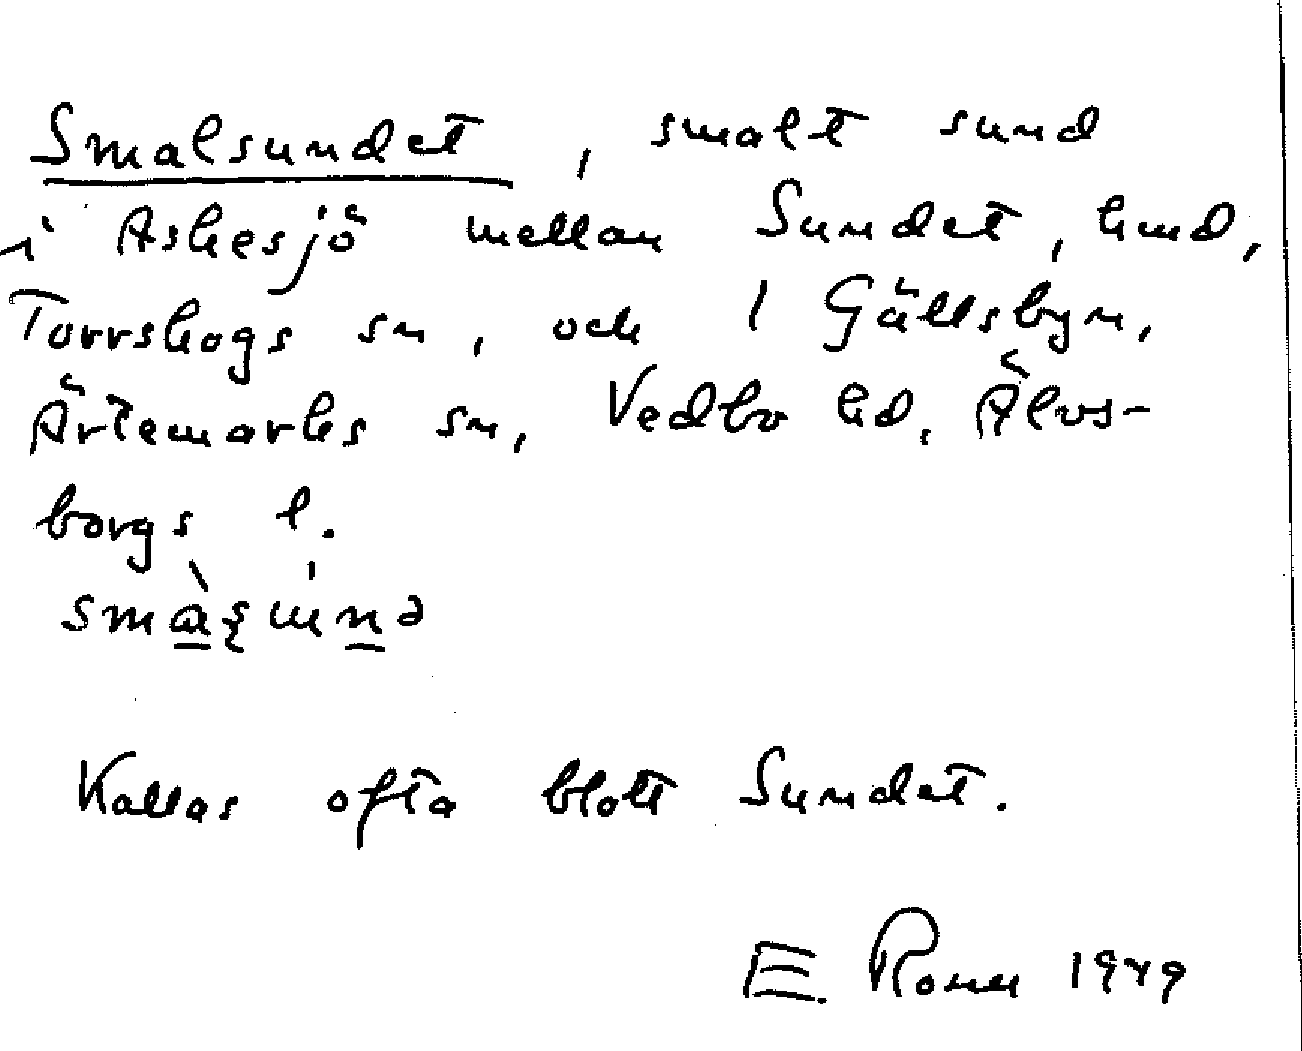 Smalsundet, smalt sund
i Askesjö mellan Sundet, hmd,
Torrskogs sn, och 1 Gällsbyn,
Ärtemarks sn, Vedbo hd, Älvs-
borgs l.
Kallas ofta blott Sundet.
E. Rom 1949